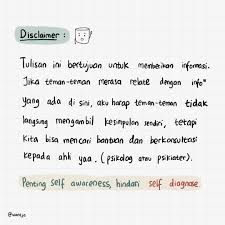 Disclaimer :
Tulisan ini bertujuan untuk memberikan informasi.
Jika teman-teman merasa relate dengan info"
yang ada di sini, aku harap teman-teman tidak
langsung mengambil kesimpulan sendiri, tetapi
kita bisa mencari bantuan dan berkonsultasi
kepada ahli yaa. (psikolog atau psikiater).
Penting self awareness, hindari self diagnose.